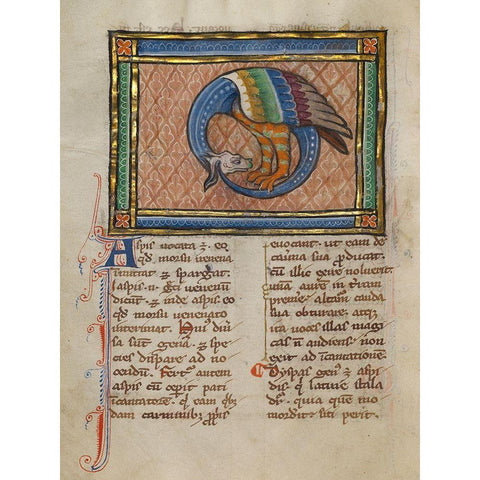 Aspis vocata ꝫ eo
qd̄ morsu venena
īmittat ꝫ spargat
Iaspis .n. greci venenū
dicūt ꝫ inde aspis eo
qd̄ morsu venenato
interimat. Hui9 diū͛
sa sunt genera ꝫ spe
cies dispares ad no
cendū. Fertur autem
aspis cū ceperit pati
incantatorē q̄ eam q̇b9
dam carminib9 ꝓpriis
evocant. ut eam de
cauerna sua ꝓducat.
cū illa exire noluerit
unā aurē in t͛ram
premit. alteram cauda
sua obturat. atq̢
ita uoces illas magi
cas nō audiens non
exit ad incantationē.
Dyspas genus ē aspi
dis. q̄ latine situla
dr̄. quia quē mo
morderit siti perit.